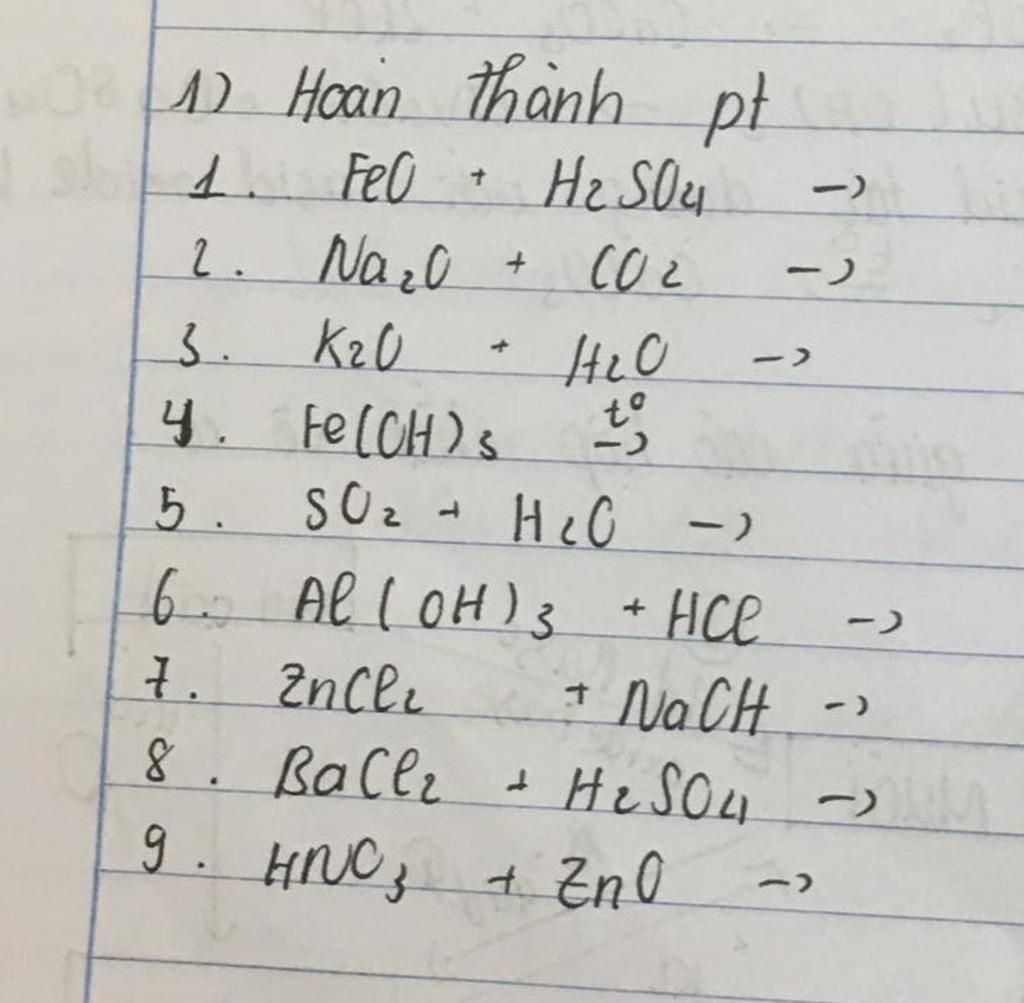 1) Hoàn thành pt
1. FeO + H2SO4 ->
2. Na2O + CO2 ->
3. K2O + H2O ->
4. Fe(OH)3 t° ->
5. SO2 + H2O ->
6. Al(OH)3 + HCl ->
7. ZnCl2 + NaOH ->
8. BaCl2 + H2SO4 ->
9. HNO3 + ZnO ->